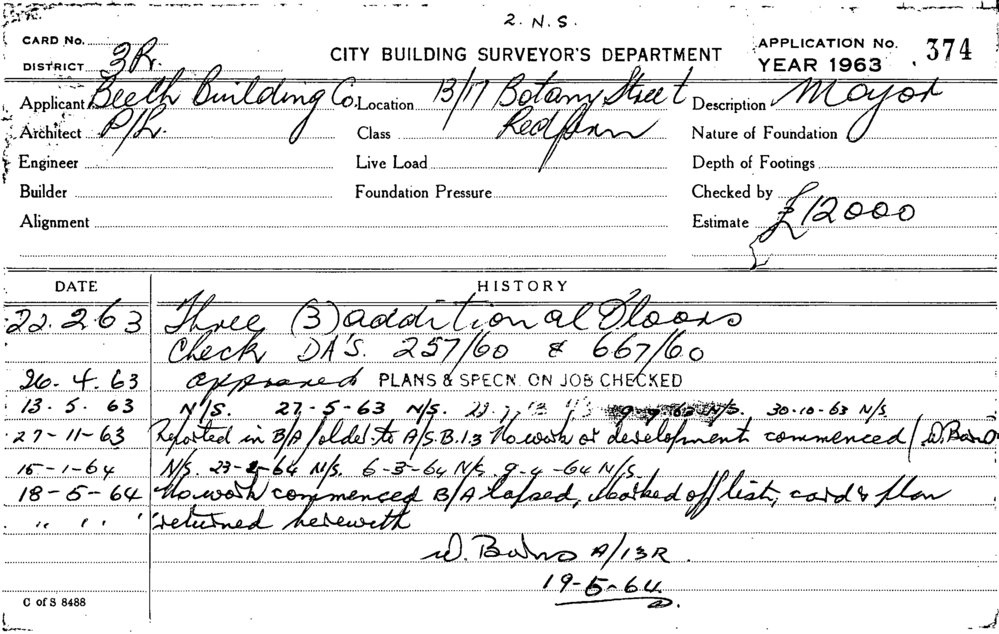 2. N.S.
CARD No.
DISTRICT 3R.
CITY BUILDING SURVEYOR'S DEPARTMENT
APPLICATION No. 374
YEAR 1963
Applicant Beeth Building Co. Location 13/17 Botany Street Description Mayor
Architect P/R. Class Redfern Nature of Foundation
Engineer Live Load Depth of Footings
Builder Foundation Pressure Checked by
Alignment Estimate £12000
DATE HISTORY
22.2.63 Three (3) additional Floors
Check DA'S. 257/60 & 667/60
26.4.63 approved PLANS & SPECN. ON JOB CHECKED
13.5.63 N/S. 27-5-63 N/S. N/S. 30-10-63 N/S.
27-11-63 Reported in B/A folder to A/S.B.13 No work or development commenced
15-1-64 N/S. 23-2-64 N/S. 6-3-64 N/S. 9-4-64 N/S.
18-5-64 No work commenced B/A lapsed, Marked off list, card & plan
" " " returned herewith
19-5-64.
C of S 8488